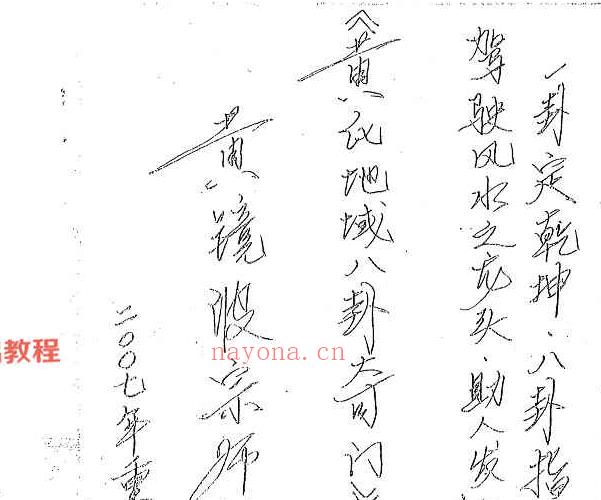 一卦定乾坤·八卦指
驾驶风水之龙头·助人发
《黄氏地域八卦奇门》
黄镜波宗师
二〇〇七年重
教程
nayona.cn